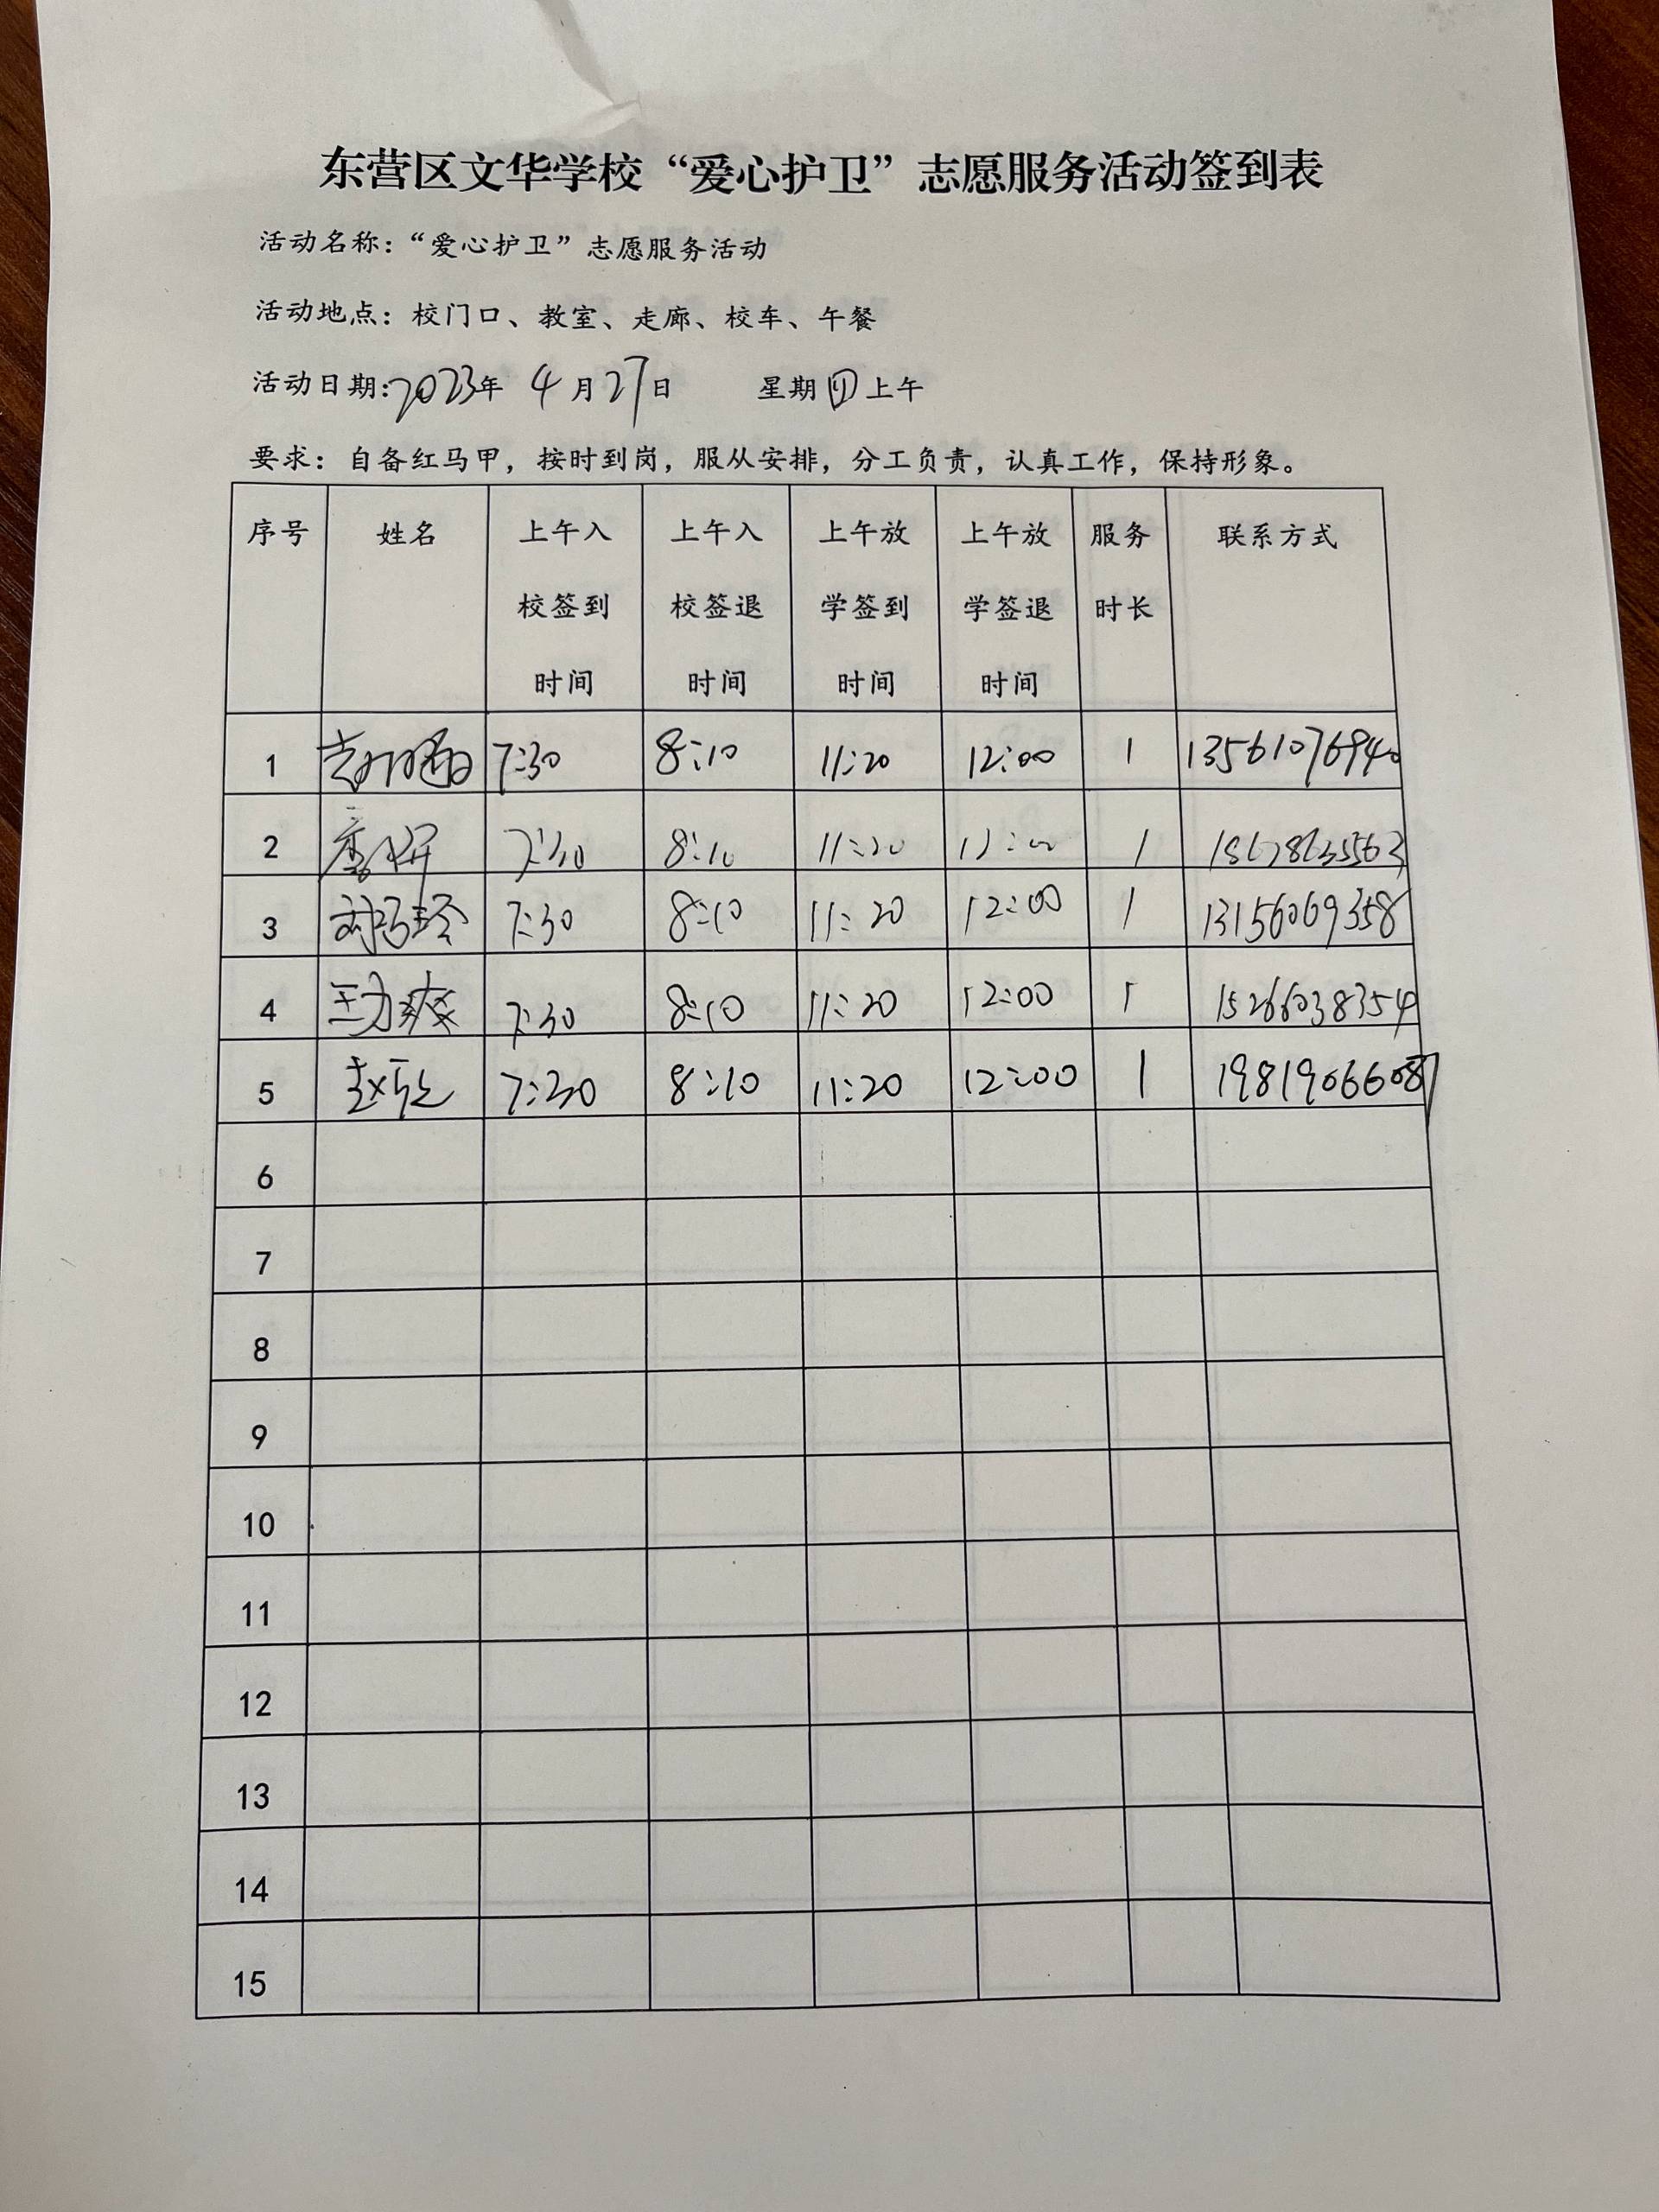 东营区文华学校“爱心护卫”志愿服务活动签到表
活动名称：“爱心护卫”志愿服务活动
活动地点：校门口、教室、走廊、校车、午餐
活动日期：2023年 4月27日 星期四上午
要求：自备红马甲，按时到岗，服从安排，分工负责，认真工作，保持形象。
序号 姓名 上午入校签到时间 上午入校签退时间 上午放学签到时间 上午放学签退时间 服务时长 联系方式
1 7:30 8:10 11:20 12:00 1 13561076940
2 7:30 8:10 11:20 12:00 1
3 7:30 8:10 11:20 12:00 1 13156069358
4 7:30 8:10 11:20 12:00 1 15266038354
5 7:30 8:10 11:20 12:00 1 19819066087
6
7
8
9
10
11
12
13
14
15